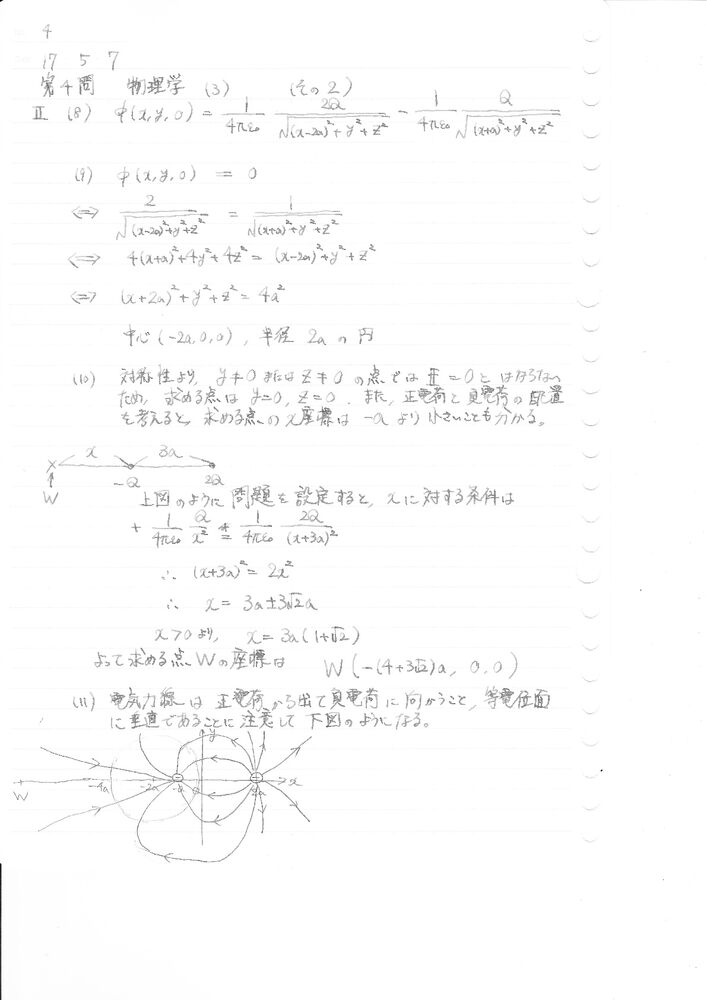 4
17 5 7
第4問 物理学 (3) (その2)
II (8) φ(x,y,0) = 1/4πε₀ 2Q/√((x-2a)²+y²+z²) - 1/4πε₀ Q/√((x+a)²+y²+z²)
(9) φ(x,y,0) = 0
⇔ 2/√((x-2a)²+y²+z²) = 1/√((x+a)²+y²+z²)
⇔ 4(x+a)²+4y²+4z² = (x-2a)²+y²+z²
⇔ (x+2a)²+y²+z² = 4a²
中心(-2a,0,0), 半径 2a の円
(10) 対称性より, y≠0 または z≠0 の点では E=0とはならない
ため, 求める点は y=0, z=0. また, 正電荷と負電荷の配置
を考えると, 求める点のx座標は -aより小さいことも分かる。
x 3a
W -Q 2Q
上図のように問題を設定すると, xに対する条件は
+ 1/4πε₀ Q/x² = 1/4πε₀ 2Q/(x+3a)²
∴ (x+3a)² = 2x²
∴ x = 3a±3√2a
x>0より, x = 3a(1+√2)
よって求める点Wの座標は W(-(4+3√2)a, 0, 0)
(11) 電気力線は正電荷から出て負電荷に向かうこと, 等電位面
に垂直であることに注意して下図のようになる。
y
W -4a -2a -a 0 2a x